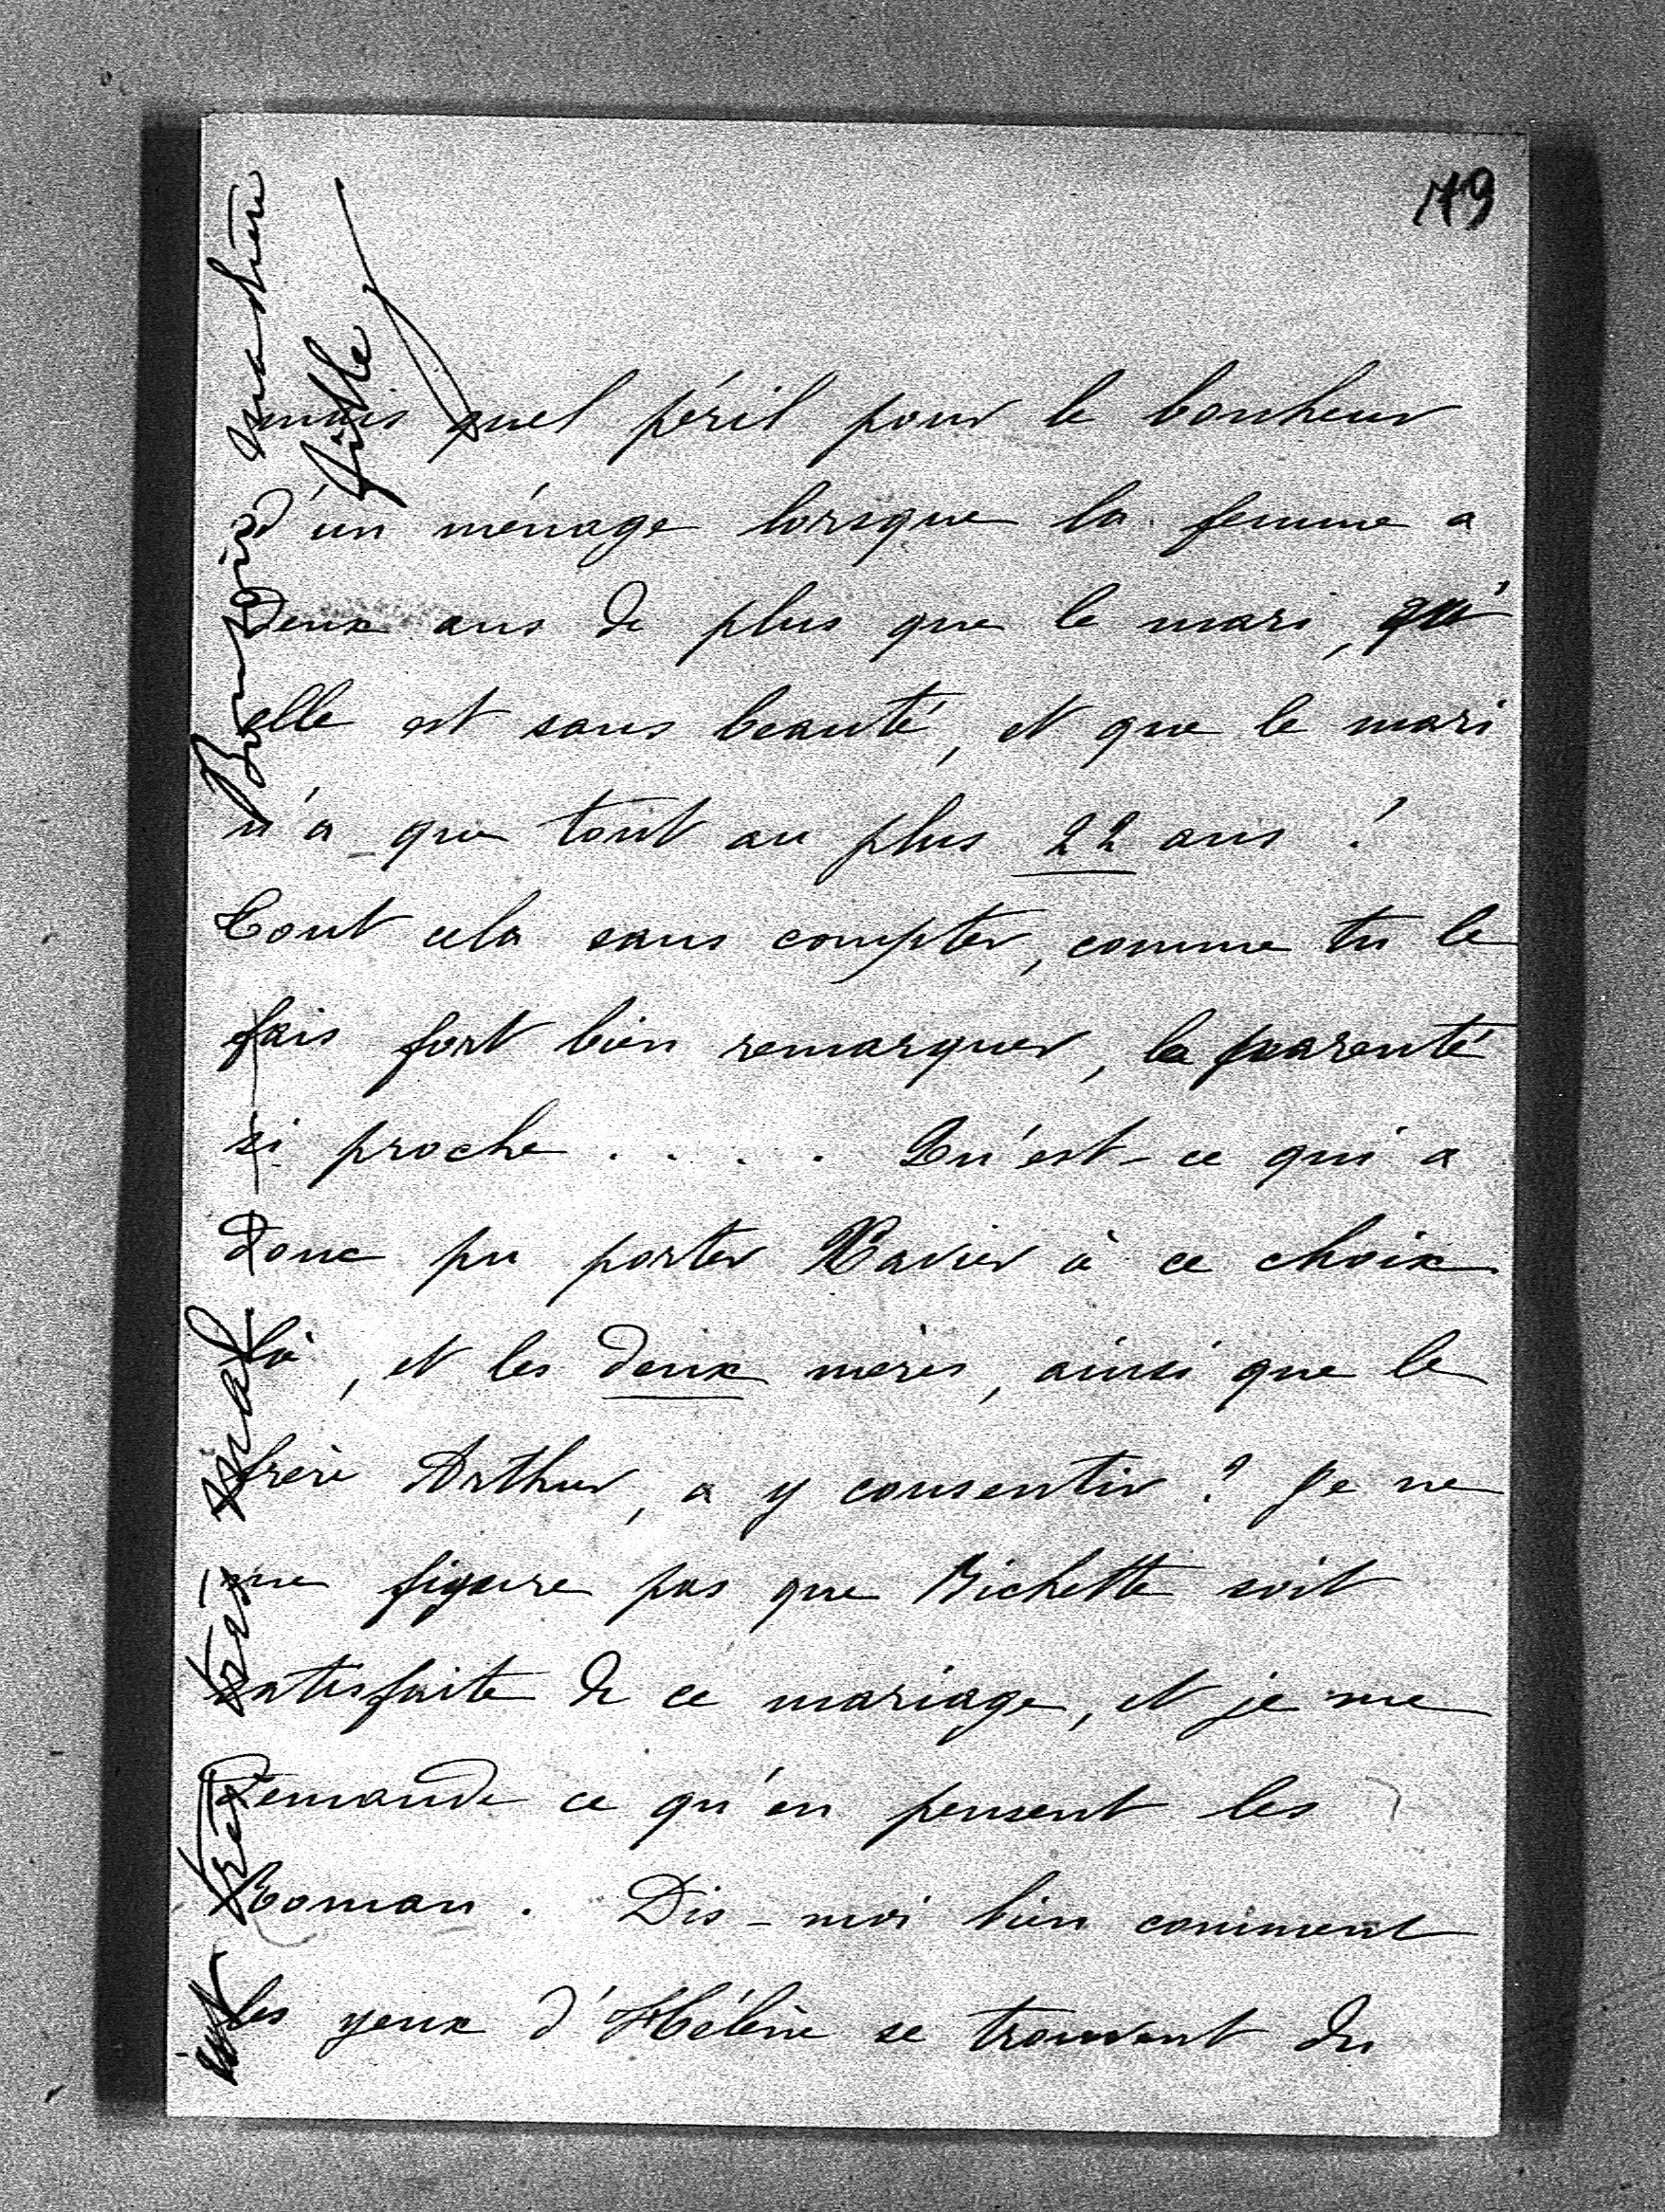 179
mais quel péril pour le bonheur
d'un ménage lorsque la femme a
deux ans de plus que le mari, qu'
elle est sans beauté, et que le mari
n'a que tout au plus 22 ans !
Tout cela sans compter, comme tu le
fais fort bien remarquer, la parenté
si proche . . . . Qu'est-ce qui a
donc pu porter Xavier à ce choix
là, et les deux mères, ainsi que le
frère Arthur, a y consentir ? Je ne
me figure pas que Bichette soit
satisfaite de ce mariage, et je me
demande ce qu'en pensent les
Roman. Dis-moi bien comment
les yeux d'Hélène se trouvent du
est très très mal
Bonsoir ma chère
fille